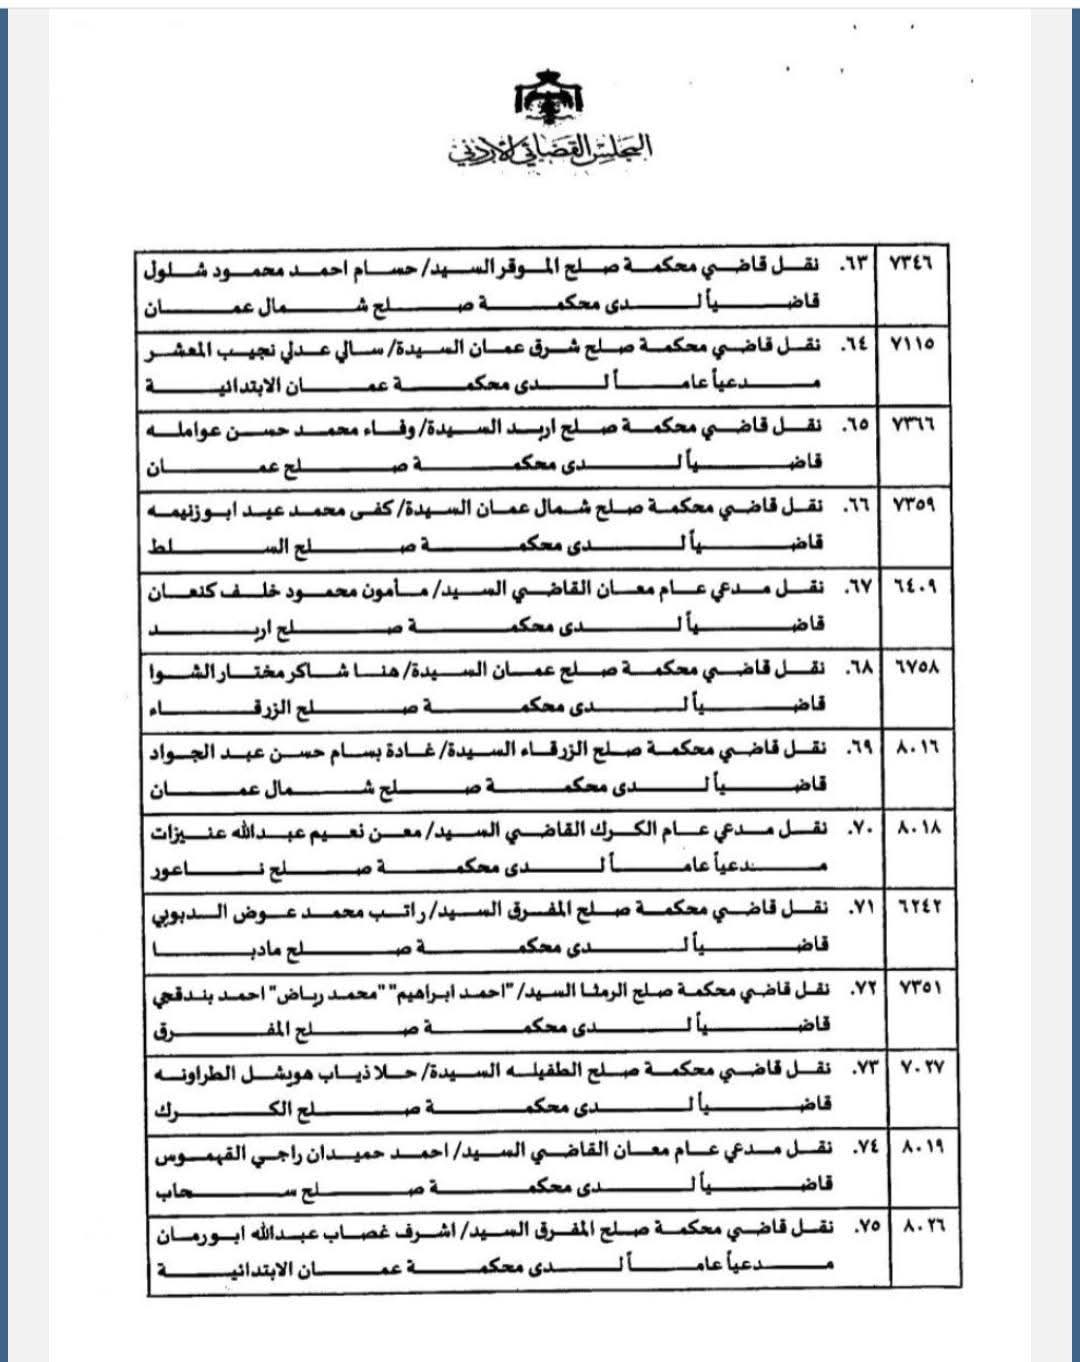 المجلس القضائي الأردني
٧٣٤٦ ٦٣. نقل قاضي محكمة صلح الموقر السيد/ حسام احمد محمود شلول
قاضياً لدى محكمة صلح شمال عمان
٧١١٥ ٦٤. نقل قاضي محكمة صلح شرق عمان السيدة/ سالي عدلي نجيب المعشر
مدعياً عاماً لدى محكمة عمان الابتدائية
٧٣٦٦ ٦٥. نقل قاضي محكمة صلح اربد السيدة/ وفاء محمد حسن عوامله
قاضياً لدى محكمة صلح عمان
٧٣٥٩ ٦٦. نقل قاضي محكمة صلح شمال عمان السيدة/ كفى محمد عيد ابوزنيمه
قاضياً لدى محكمة صلح السلط
٦٤٠٩ ٦٧. نقل مدعي عام معان القاضي السيد/ مأمون محمود خلف كنعان
قاضياً لدى محكمة صلح اربد
٦٧٥٨ ٦٨. نقل قاضي محكمة صلح عمان السيدة/ هنا شاكر مختار الشوا
قاضياً لدى محكمة صلح الزرقاء
٨٠١٦ ٦٩. نقل قاضي محكمة صلح الزرقاء السيدة/ غادة بسام حسن عبد الجواد
قاضياً لدى محكمة صلح شمال عمان
٨٠١٨ ٧٠. نقل مدعي عام الكرك القاضي السيد/ معن نعيم عبدالله عنيزات
مدعياً عاماً لدى محكمة صلح ناعور
٦٢٤٢ ٧١. نقل قاضي محكمة صلح المفرق السيد/ راتب محمد عوض الدبوبي
قاضياً لدى محكمة صلح مادبا
٧٣٥١ ٧٢. نقل قاضي محكمة صلح الرمثا السيد/ "احمد ابراهيم" "محمد رياض" احمد بندقجي
قاضياً لدى محكمة صلح المفرق
٧٠٢٧ ٧٣. نقل قاضي محكمة صلح الطفيله السيدة/ حلا ذياب هويشل الطراونه
قاضياً لدى محكمة صلح الكرك
٨٠١٩ ٧٤. نقل مدعي عام معان القاضي السيد/ احمد حميدان راجي القهموس
قاضياً لدى محكمة صلح سحاب
٨٠٢٦ ٧٥. نقل قاضي محكمة صلح المفرق السيد/ اشرف غصاب عبدالله ابورمان
مدعياً عاماً لدى محكمة عمان الابتدائية